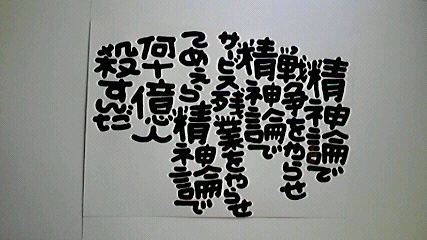 精神論で
戦争をやらせ
精神論で
サービス残業をやらせ
てめえら
精神論で
何十億人
殺すんだ